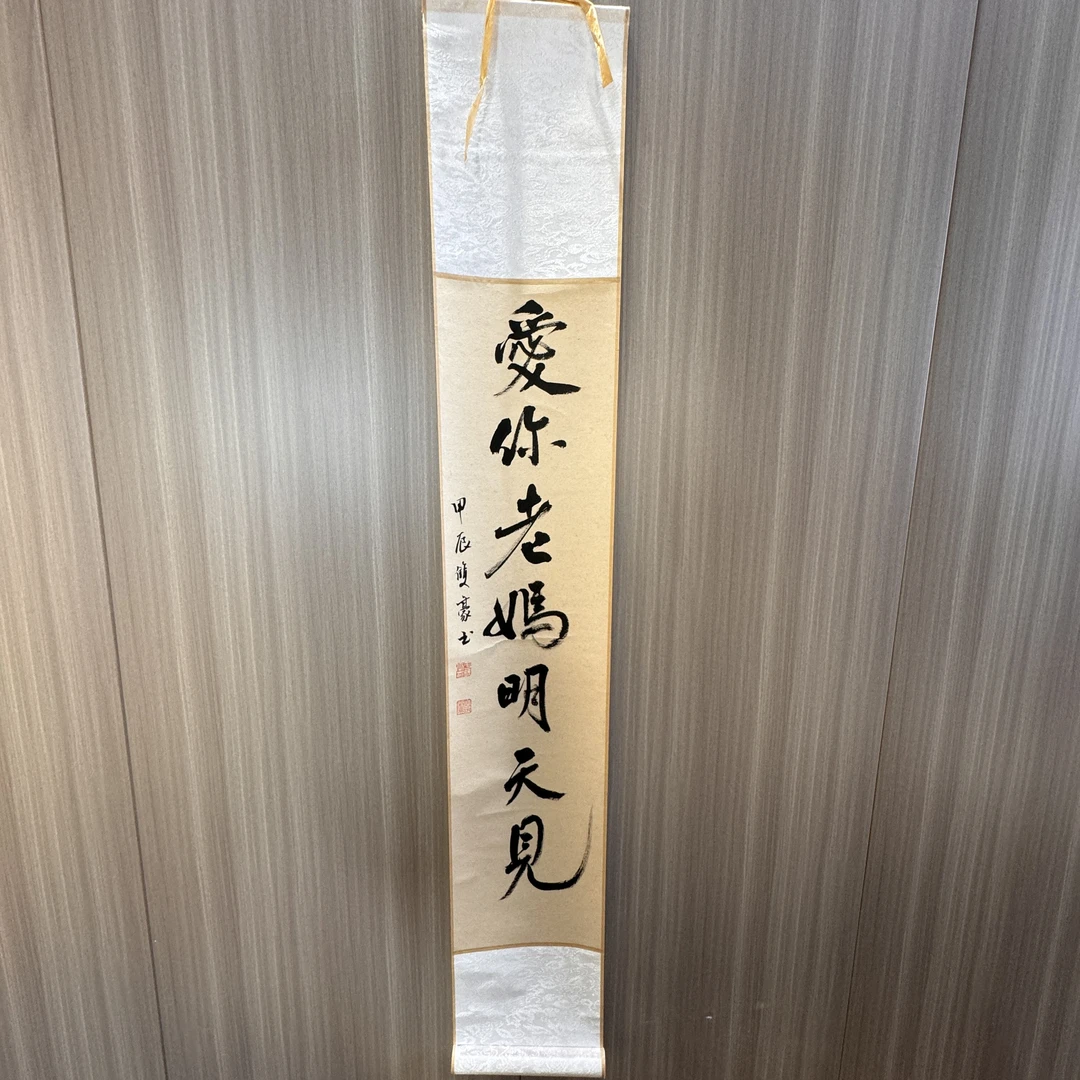 愛你老媽明天見
甲辰雙豪书